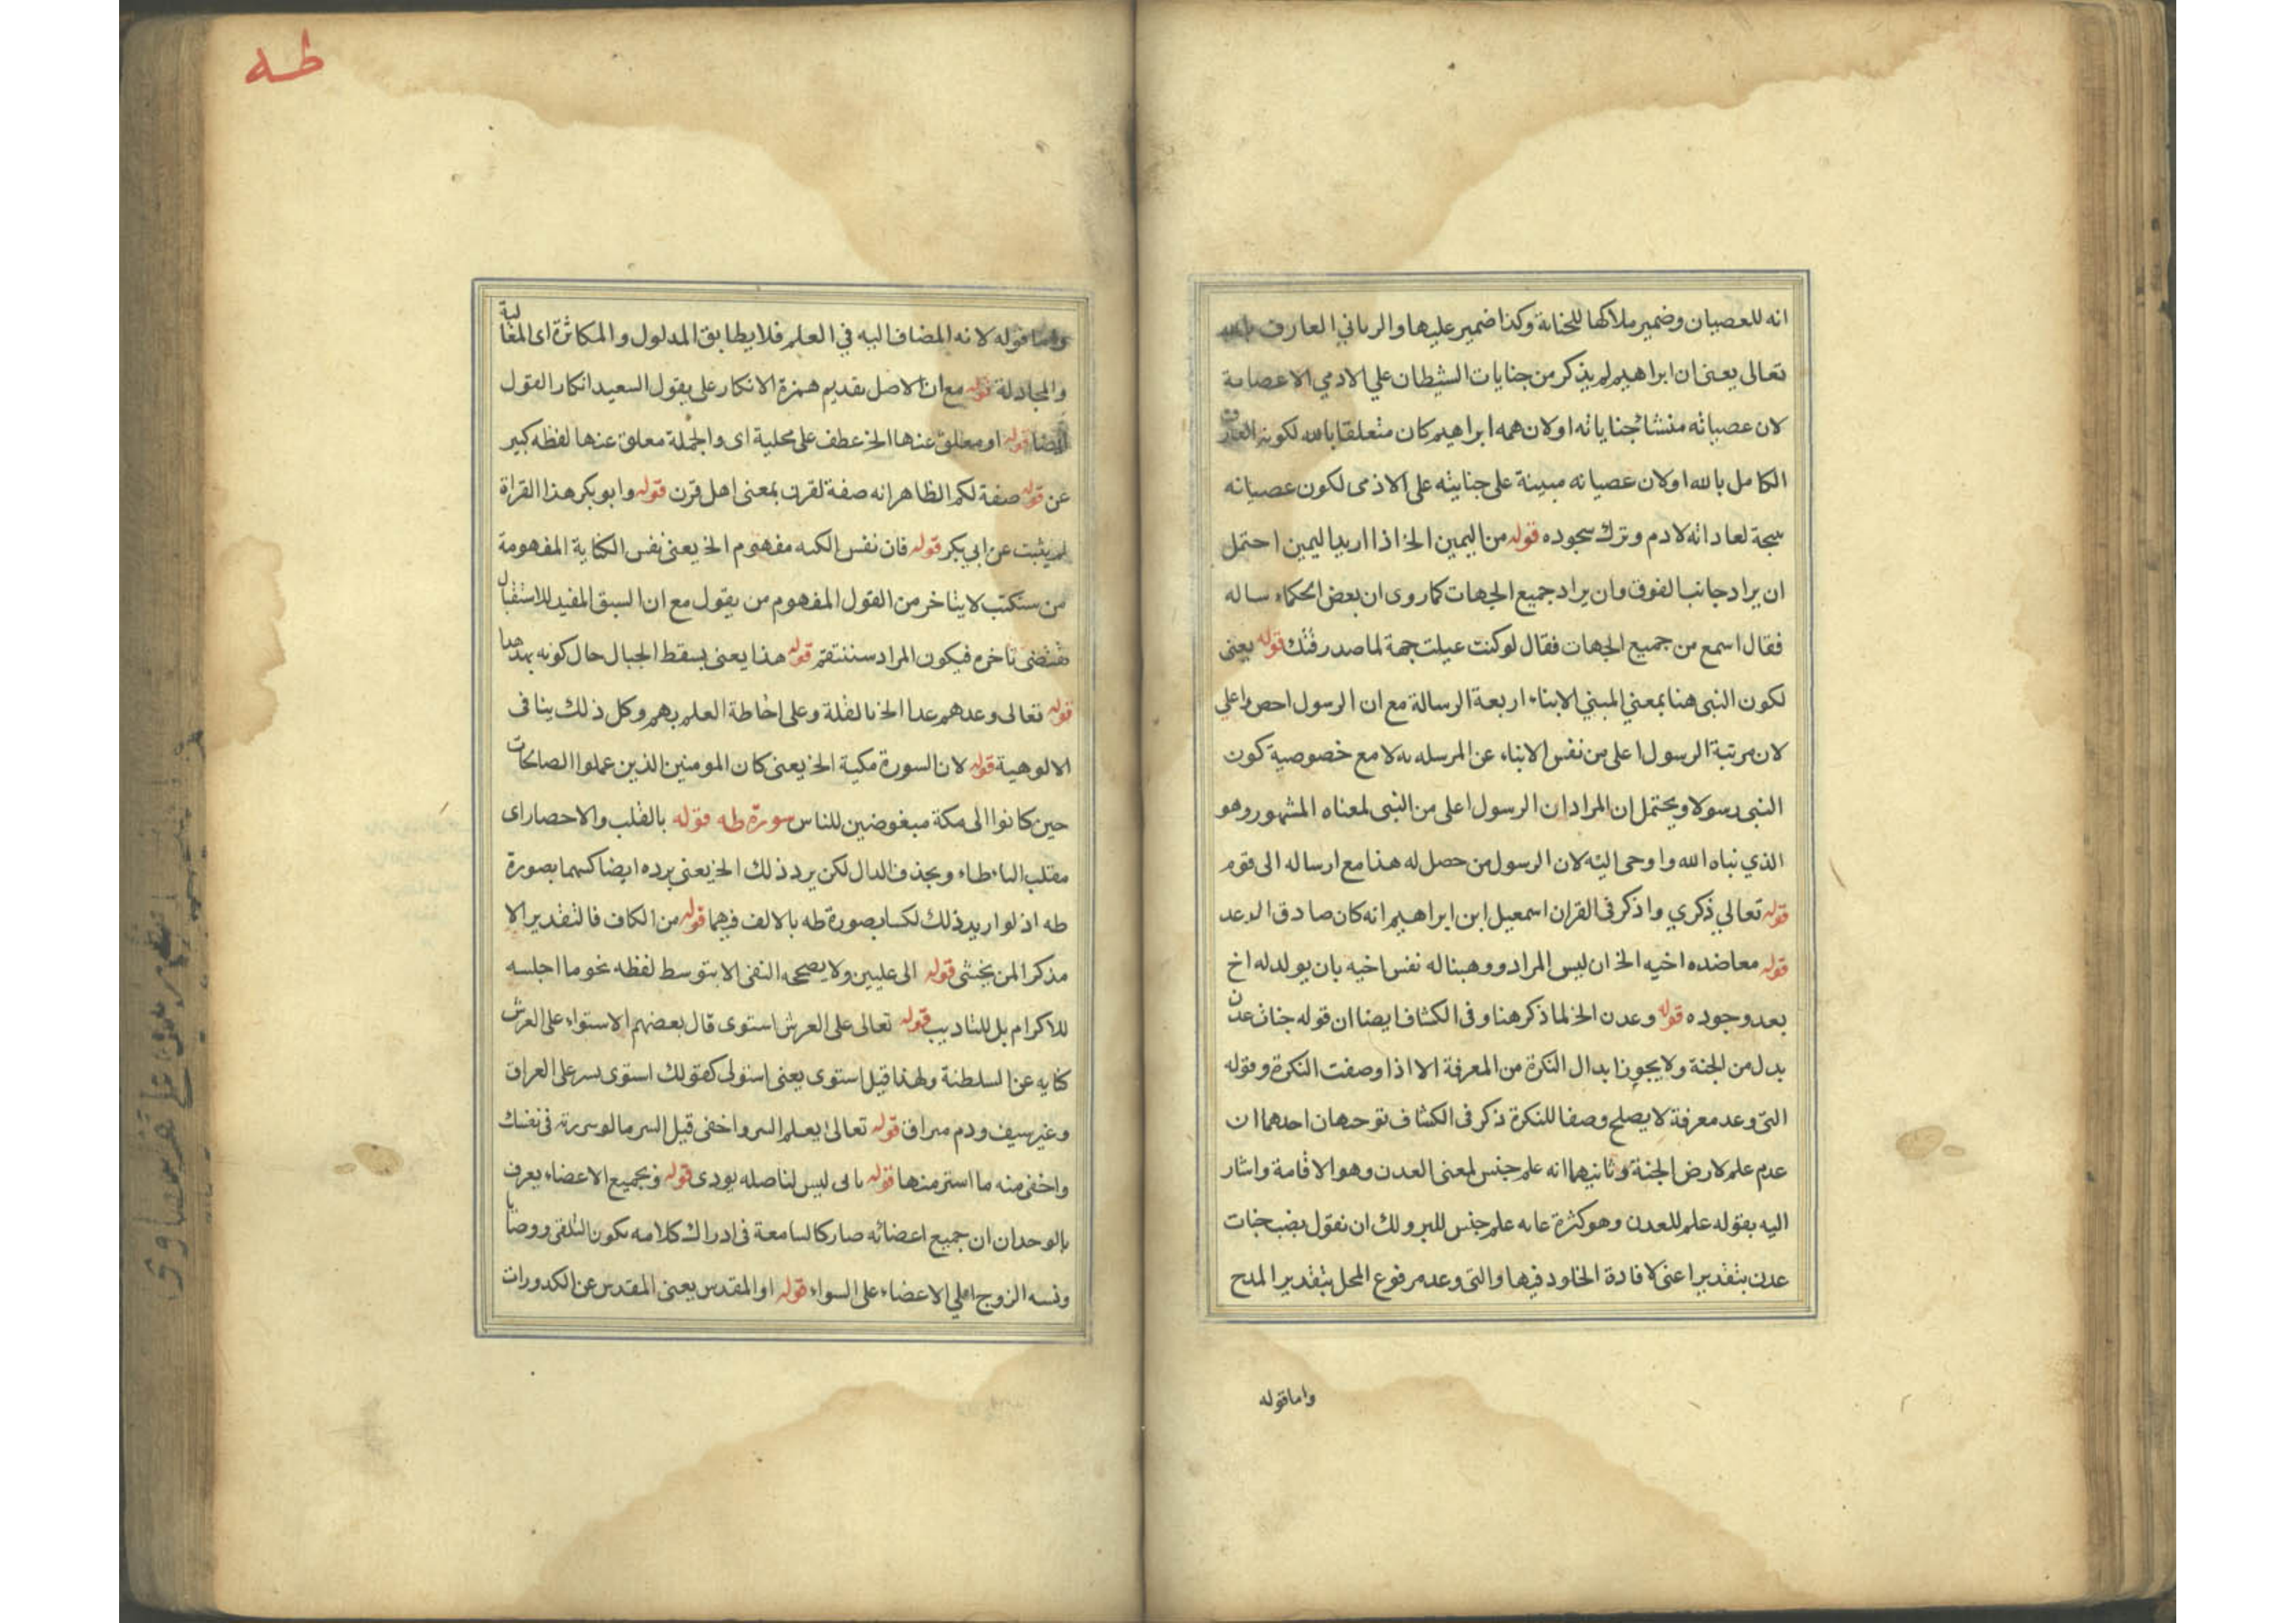 انه للعصيان وضمير ملاكها للجناية وكذا ضمير عليها والرباني العارف بالله
تعالى يعنى ان ابراهيم لم يذكر من جنايات الشيطان علي الادمي الا عصيانه
لان عصيانه منشاء جناياته اولان همه ابراهيم كان متعلقا بالله لكونه العارف
الكامل بالله اولان عصيانه مبينة على جنايته على الادمى لكون عصيانه
نتيجة لعاداته لادم وترك سجوده قوله من اليمين الخ اذا اريد اليمين احتمل
ان يراد جانب الفوق وان يراد جميع الجهات كما روى ان بعض الحكماء ساله
فقال اسمع من جميع الجهات فقال لو كنت عيلت جهة لما صدرفتك قوله يعنى
لكون النبى هنا بمعني المبني الابناء اربعة الرسالة مع ان الرسول احص واعلي
لان مرتبة الرسول اعلى من نفس الابناء عن المرسله به لا مع خصوصية كون
النبى رسولا ويحتمل ان المراد ان الرسول اعلى من النبى لمعناه المشهور وهو
الذي نباه الله واوحى اليه لان الرسول من حصل له هذا مع ارساله الى قوم
قوله تعالي ذكري واذكر فى القران اسمعيل ابن ابراهيم انه كان صادق الوعد
قوله معاضده اخيه الخ ان ليس المراد ووهبنا له نفس اخيه بان يولد له اخ
بعد وجوده قوله وعدن الخ لما ذكر هنا وفى الكشاف ايضا ان قوله جنات عدن
بدل من الجنة ولا يجوز ابدال النكرة من المعرفة الا اذا وصفت النكرة وقوله
التى وعد معرفة لا يصلح وصفا للنكرة ذكر فى الكشاف توجهان احدهما ان
عدم علم لارض الجنة وثانيهما انه علم جنس لمعنى العدن وهو الاقامة واشار
اليه بقوله علم للعدن وهو كثرة عابه علم جنس للبر ولك ان نقول بضب جنات
عدن بتقدير اعنى لافادة الخلود فيها والتى وعد مرفوع المحل بتقدير المدح
واما قوله
طه
واما قوله لانه المضاف اليه في العلم فلا يطابق المدلول والمكاثرة اى المغالبة
والمجادلة قوله مع ان الاصل بقديم همزة الانكار على يقول السعيد انكار القول
ايضا قوله او معلق عنها الخ عطف على محلية اى والجملة معلق عنها لفظه كبير
عن قوله صفة لكم الظاهر انه صفة لقرن بمعنى اهل قرن قوله وابو بكر هذا القراة
لم يثبت عن ابي بكر قوله فان نفس الكبه مفهوم الخ يعنى نفس الكتابة المفهومة
من سنكتب لا يتاخر من القول المفهوم من يقول مع ان السبق المفيد للاستقبال
يقتضى تاخره فيكون المراد سننتقم قوله هذا يعنى يسقط الجبال حال كونه يهدها
قوله تعالى وعدهم عدا الخ بالقلة وعلى اخاطة العلم بهم وكل ذلك ينافى
الالوهية قوله لان السورة مكية الخ يعنى كان المومنين الذين عملوا الصالحات
حين كانوا الى مكة مبغوضين للناس سورة طه قوله بالقلب والاحصار اى
مقلب الياء طاء وبحذف الدال لكن يرد ذلك الخ يعنى يرده ايضا كسهما بصورة
طه اذ لو اريد ذلك لكسا بصورة طه بالالف فيهما قوله من الكاف فالتقدير الا
مذكرا لمن يخشى قوله الى عليين ولا يصححه النفى الا بتوسط لفظه نحو ما اجلسه
للاكرام بل للتاديب قوله تعالى على العرش استوى قال بعضهم الاستواء على العرش
كنايه عن السلطنة ولهذا قيل استوى يعنى استولى كقولك استوى بسر على العراق
وغير سيف ودم مهراق قوله تعالى ايعلم السر واخفى قيل السر ما لوسررته فى نفسك
واخفى منه ما استر منها قوله بانى ليس لنا صله يودى قوله وبجميع الاعضاء يعرف
بالوحدان ان جميع اعضائه صار كالسامعة فى ادراك كلامه يكون التلقى روضا
ونسه الزوج اهلي الاعضاء على السواء قوله او المقدس يعنى المقدس عن الكدورات